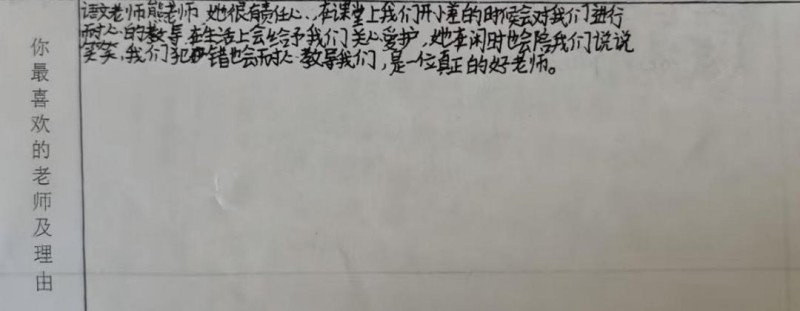 你最喜欢的老师及理由
语文老师熊老师 她很有责任心,在课堂上我们开小差的时候会对我们进行
耐心的教导,在生活上会给予我们关心爱护,她在闲时也会陪我们说说
笑笑,我们犯错也会耐心教导我们,是一位真正的好老师。